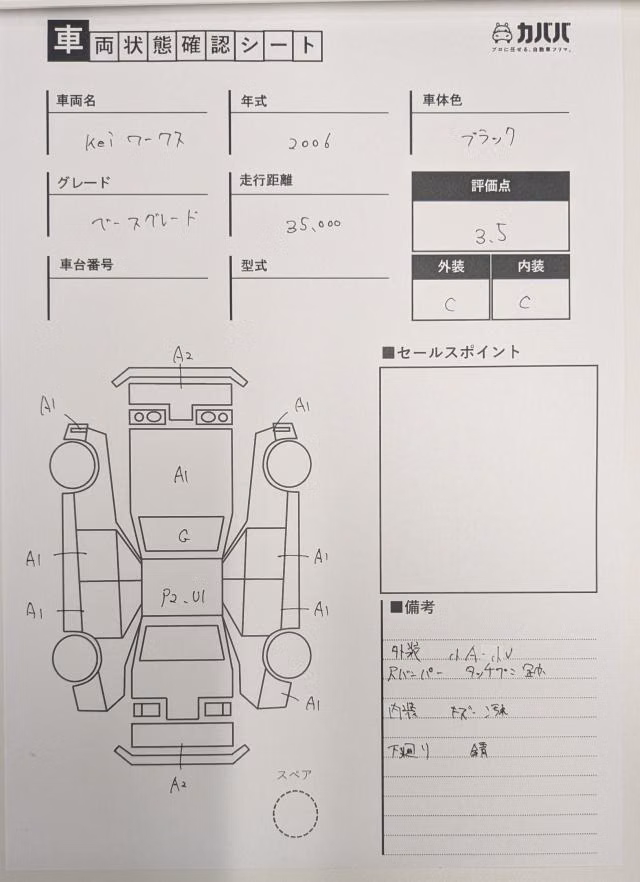 車両状態確認シート
カババ
プロに任せる、自動車フリマ。
車両名
Kei ワークス
年式
2006
車体色
ブラック
グレード
ベースグレード
走行距離
35,000
評価点
3.5
車台番号
型式
外装
C
内装
C
A2
A1
A1
A1
G
A1
A1
P2.U1
A1
A1
A1
A2
スペア
■セールスポイント
■備考
外装 小A・小U
Rバンパー タッチペン
内装 キズ・汚れ
下廻り 錆